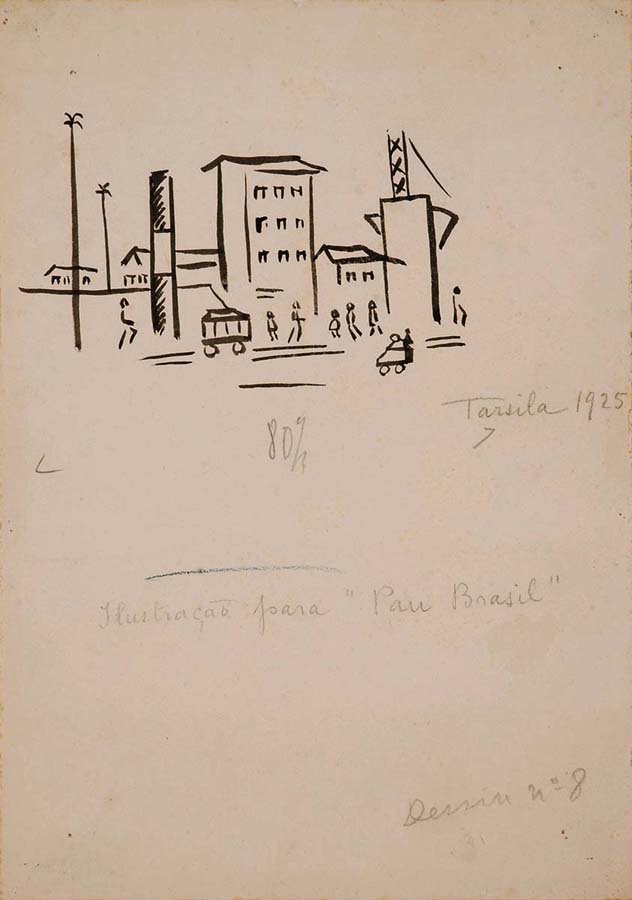 Tarsila 1925
80%
Ilustração para "Pau Brasil"
Dessin nº 8